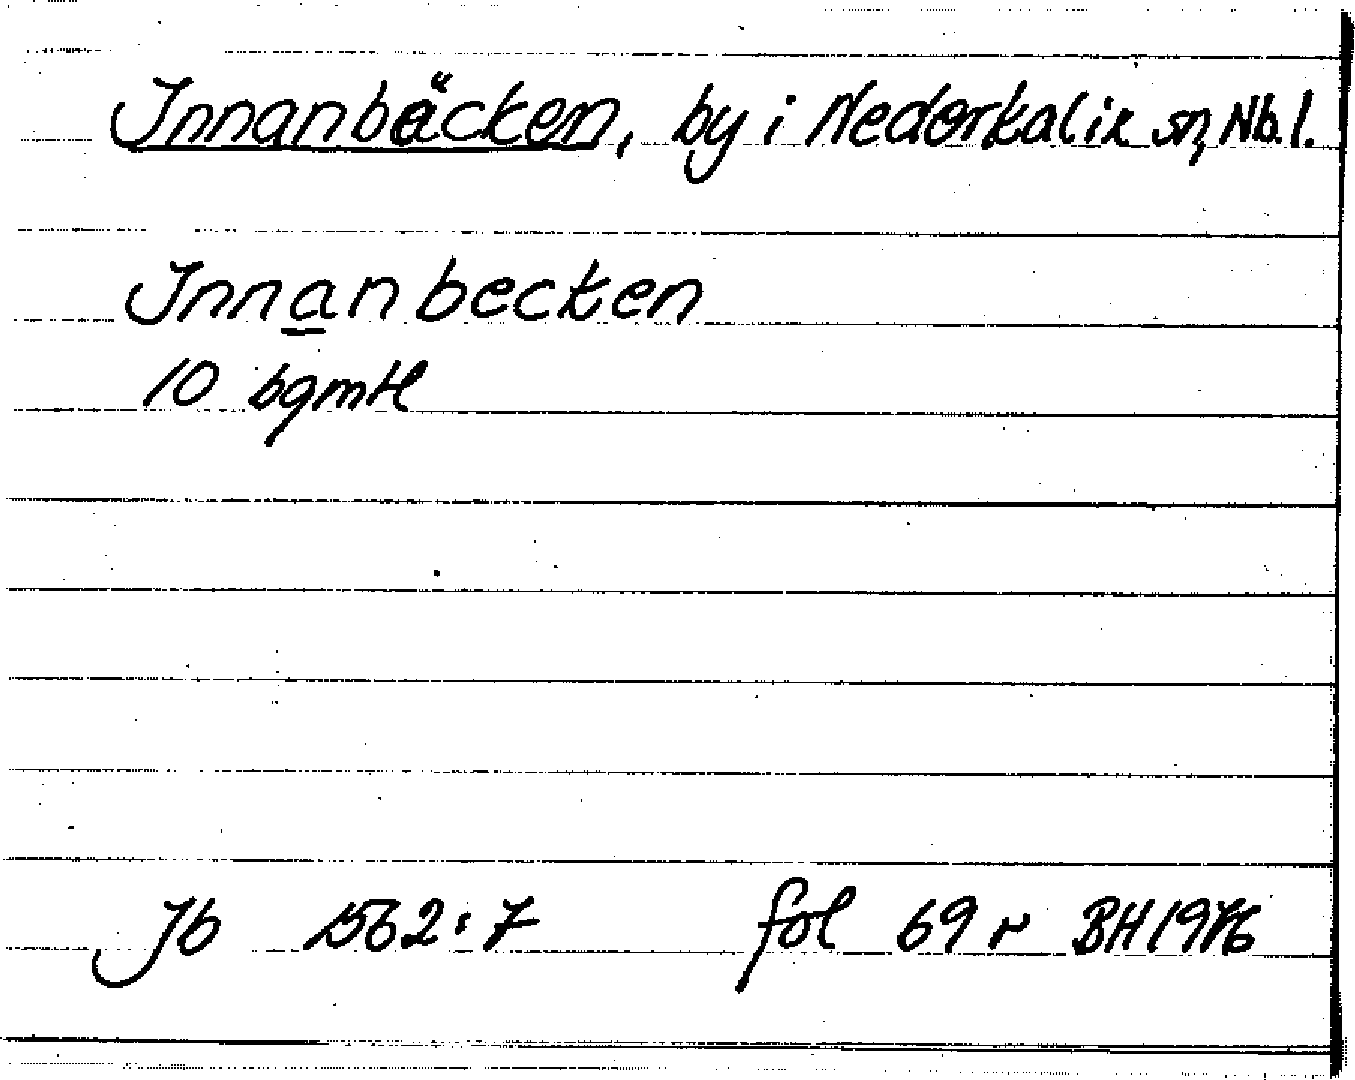 Innanbäcken, by i Nederkalix sn, Nb.l.
Innanbecken
10 bgmtl
Jb 1562:7 fol 69 r BH 1976